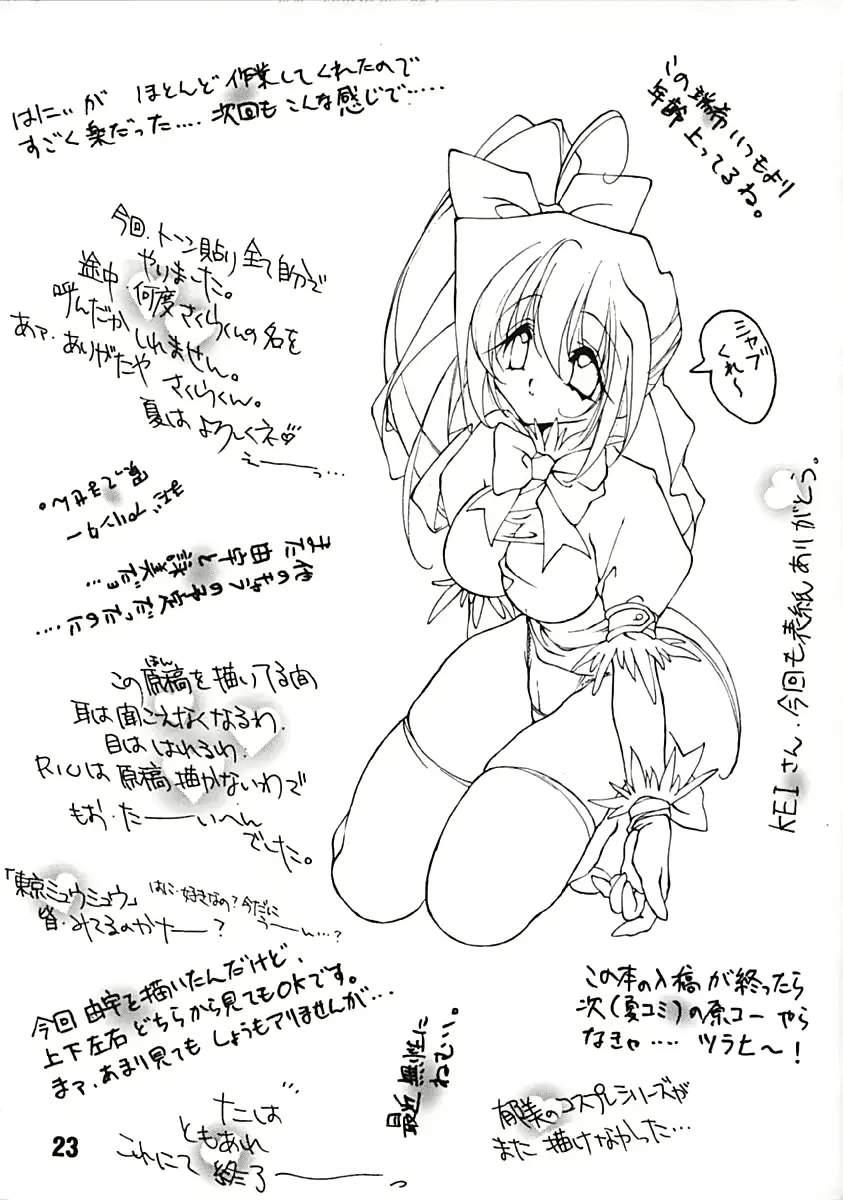 はにぃが ほとんど 作業してくれたので
すごく楽だった.... 次回も こんな感じで.....
この瑞希いつもより
年齢上ってるね。
今回、トーン貼り全て自分で
やりました。
途中 何度さくらくんの名を
呼んだか しれません。
あァ、ありがたや さくらくん。
夏は よろしくネ♡
えーーっ...
ミャブ
くれ〜
KEIさん、今回も表紙ありがとう。
この原稿を描いてる間
ほん
耳は聞こえなくなるわ、
目は はれるわ、
RIUは原稿描かないわで
もお、たーーいへん
でした。
「東京ミュウミュウ」
皆、みてるのかなー?
はに、好きなの?今だに
うーーん...?
今回 由宇を描いたんだけど、
上下左右 どちらから見てもOKです。
まァ、あまり見ても しょうもアリませんが....
最近 無性に
ねむい。
この本の入稿が終ったら
次(夏コミ)の原コーやら
なきゃ.... ツラヒ〜!
郁美のコスプレシリーズが
また 描けなかった...
ともあれ
これにて 終了ーーっ
23